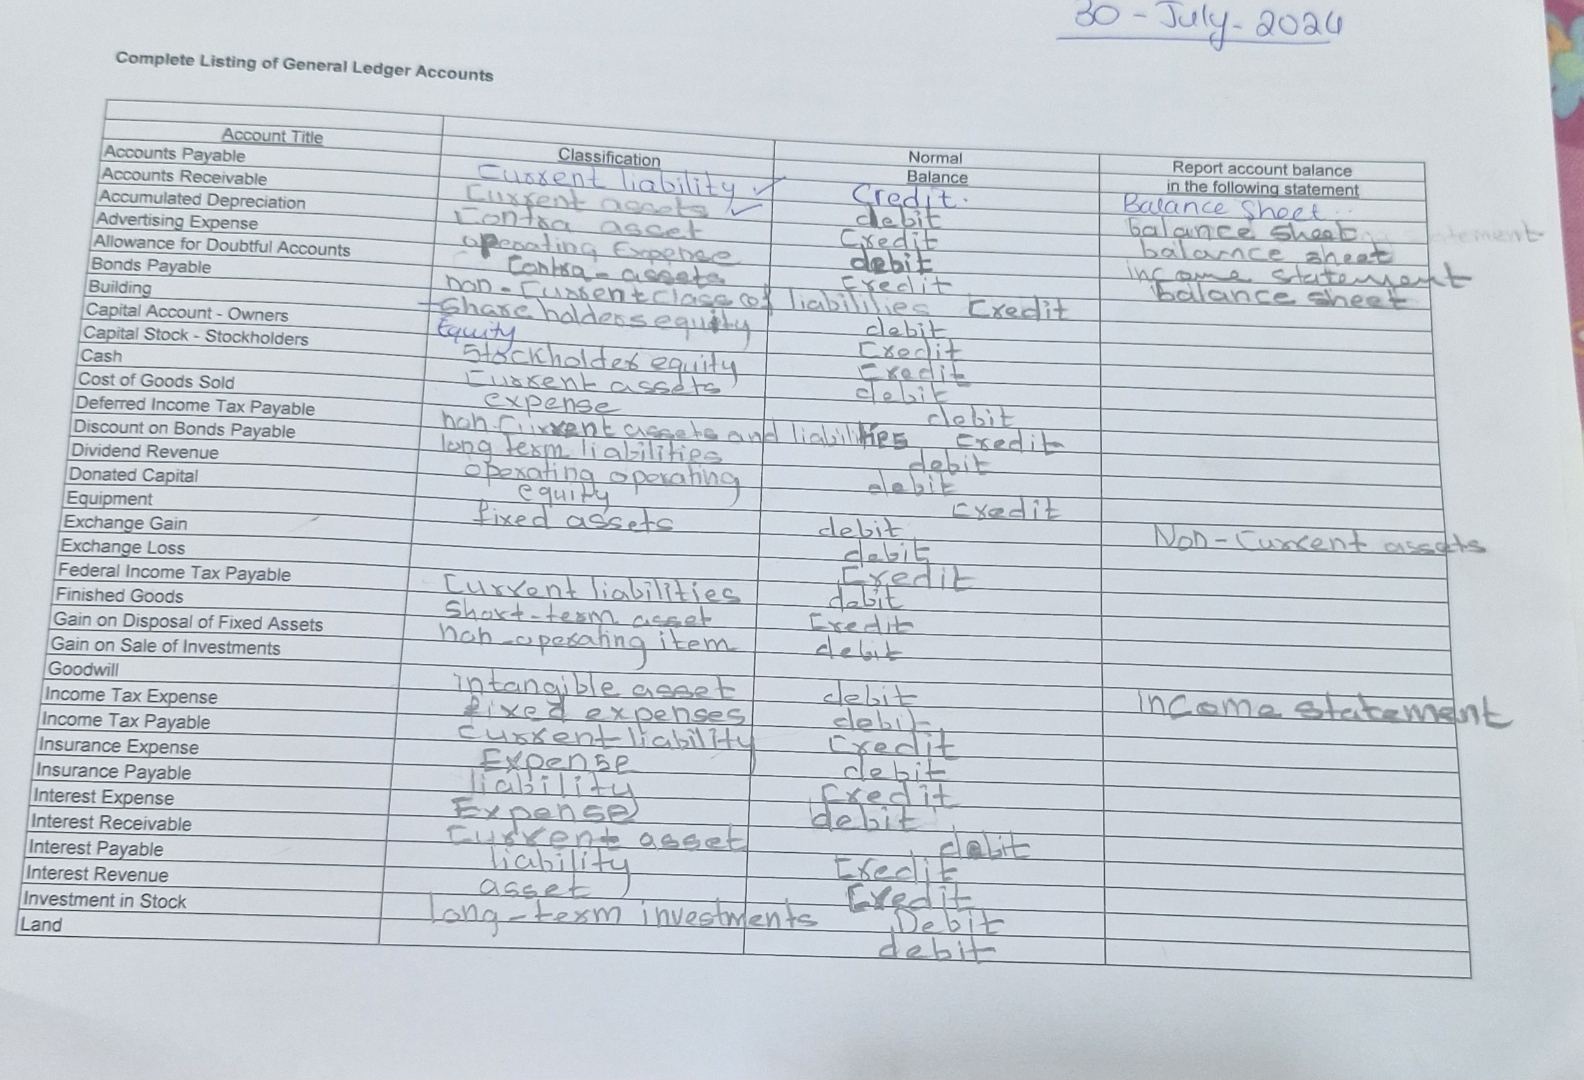 30-July-2024
Complete Listing of General Ledger Accounts
Account Title Classification Normal Balance Report account balance in the following statement
Accounts Payable Current liability ✓ Credit. Balance Sheet..
Accounts Receivable Current assets ✓ debit balance sheet
Accumulated Depreciation Contra asset Credit balance sheet
Advertising Expense operating Expense debit income statement
Allowance for Doubtful Accounts Contra-assets Credit balance sheet
Bonds Payable non-Current class of liabilities Credit
Building Shareholders equity debit
Capital Account - Owners Equity Credit
Capital Stock - Stockholders Stockholder equity Credit
Cash Current assets debit
Cost of Goods Sold expense debit
Deferred Income Tax Payable non current assets and liabilities Credit
Discount on Bonds Payable long term liabilities debit
Dividend Revenue operating operating debit
Donated Capital equity Credit
Equipment fixed assets debit Non-Current assets
Exchange Gain debit
Exchange Loss Credit
Federal Income Tax Payable Current liabilities debit
Finished Goods Short-term asset Credit
Gain on Disposal of Fixed Assets non-operating item debit
Gain on Sale of Investments
Goodwill intangible asset debit income statement
Income Tax Expense fixed expenses debit
Income Tax Payable Current liability Credit
Insurance Expense Expense debit
Insurance Payable liability Credit
Interest Expense Expense debit
Interest Receivable Current asset debit
Interest Payable liability Credit
Interest Revenue asset Credit
Investment in Stock long-term investments Debit
Land debit